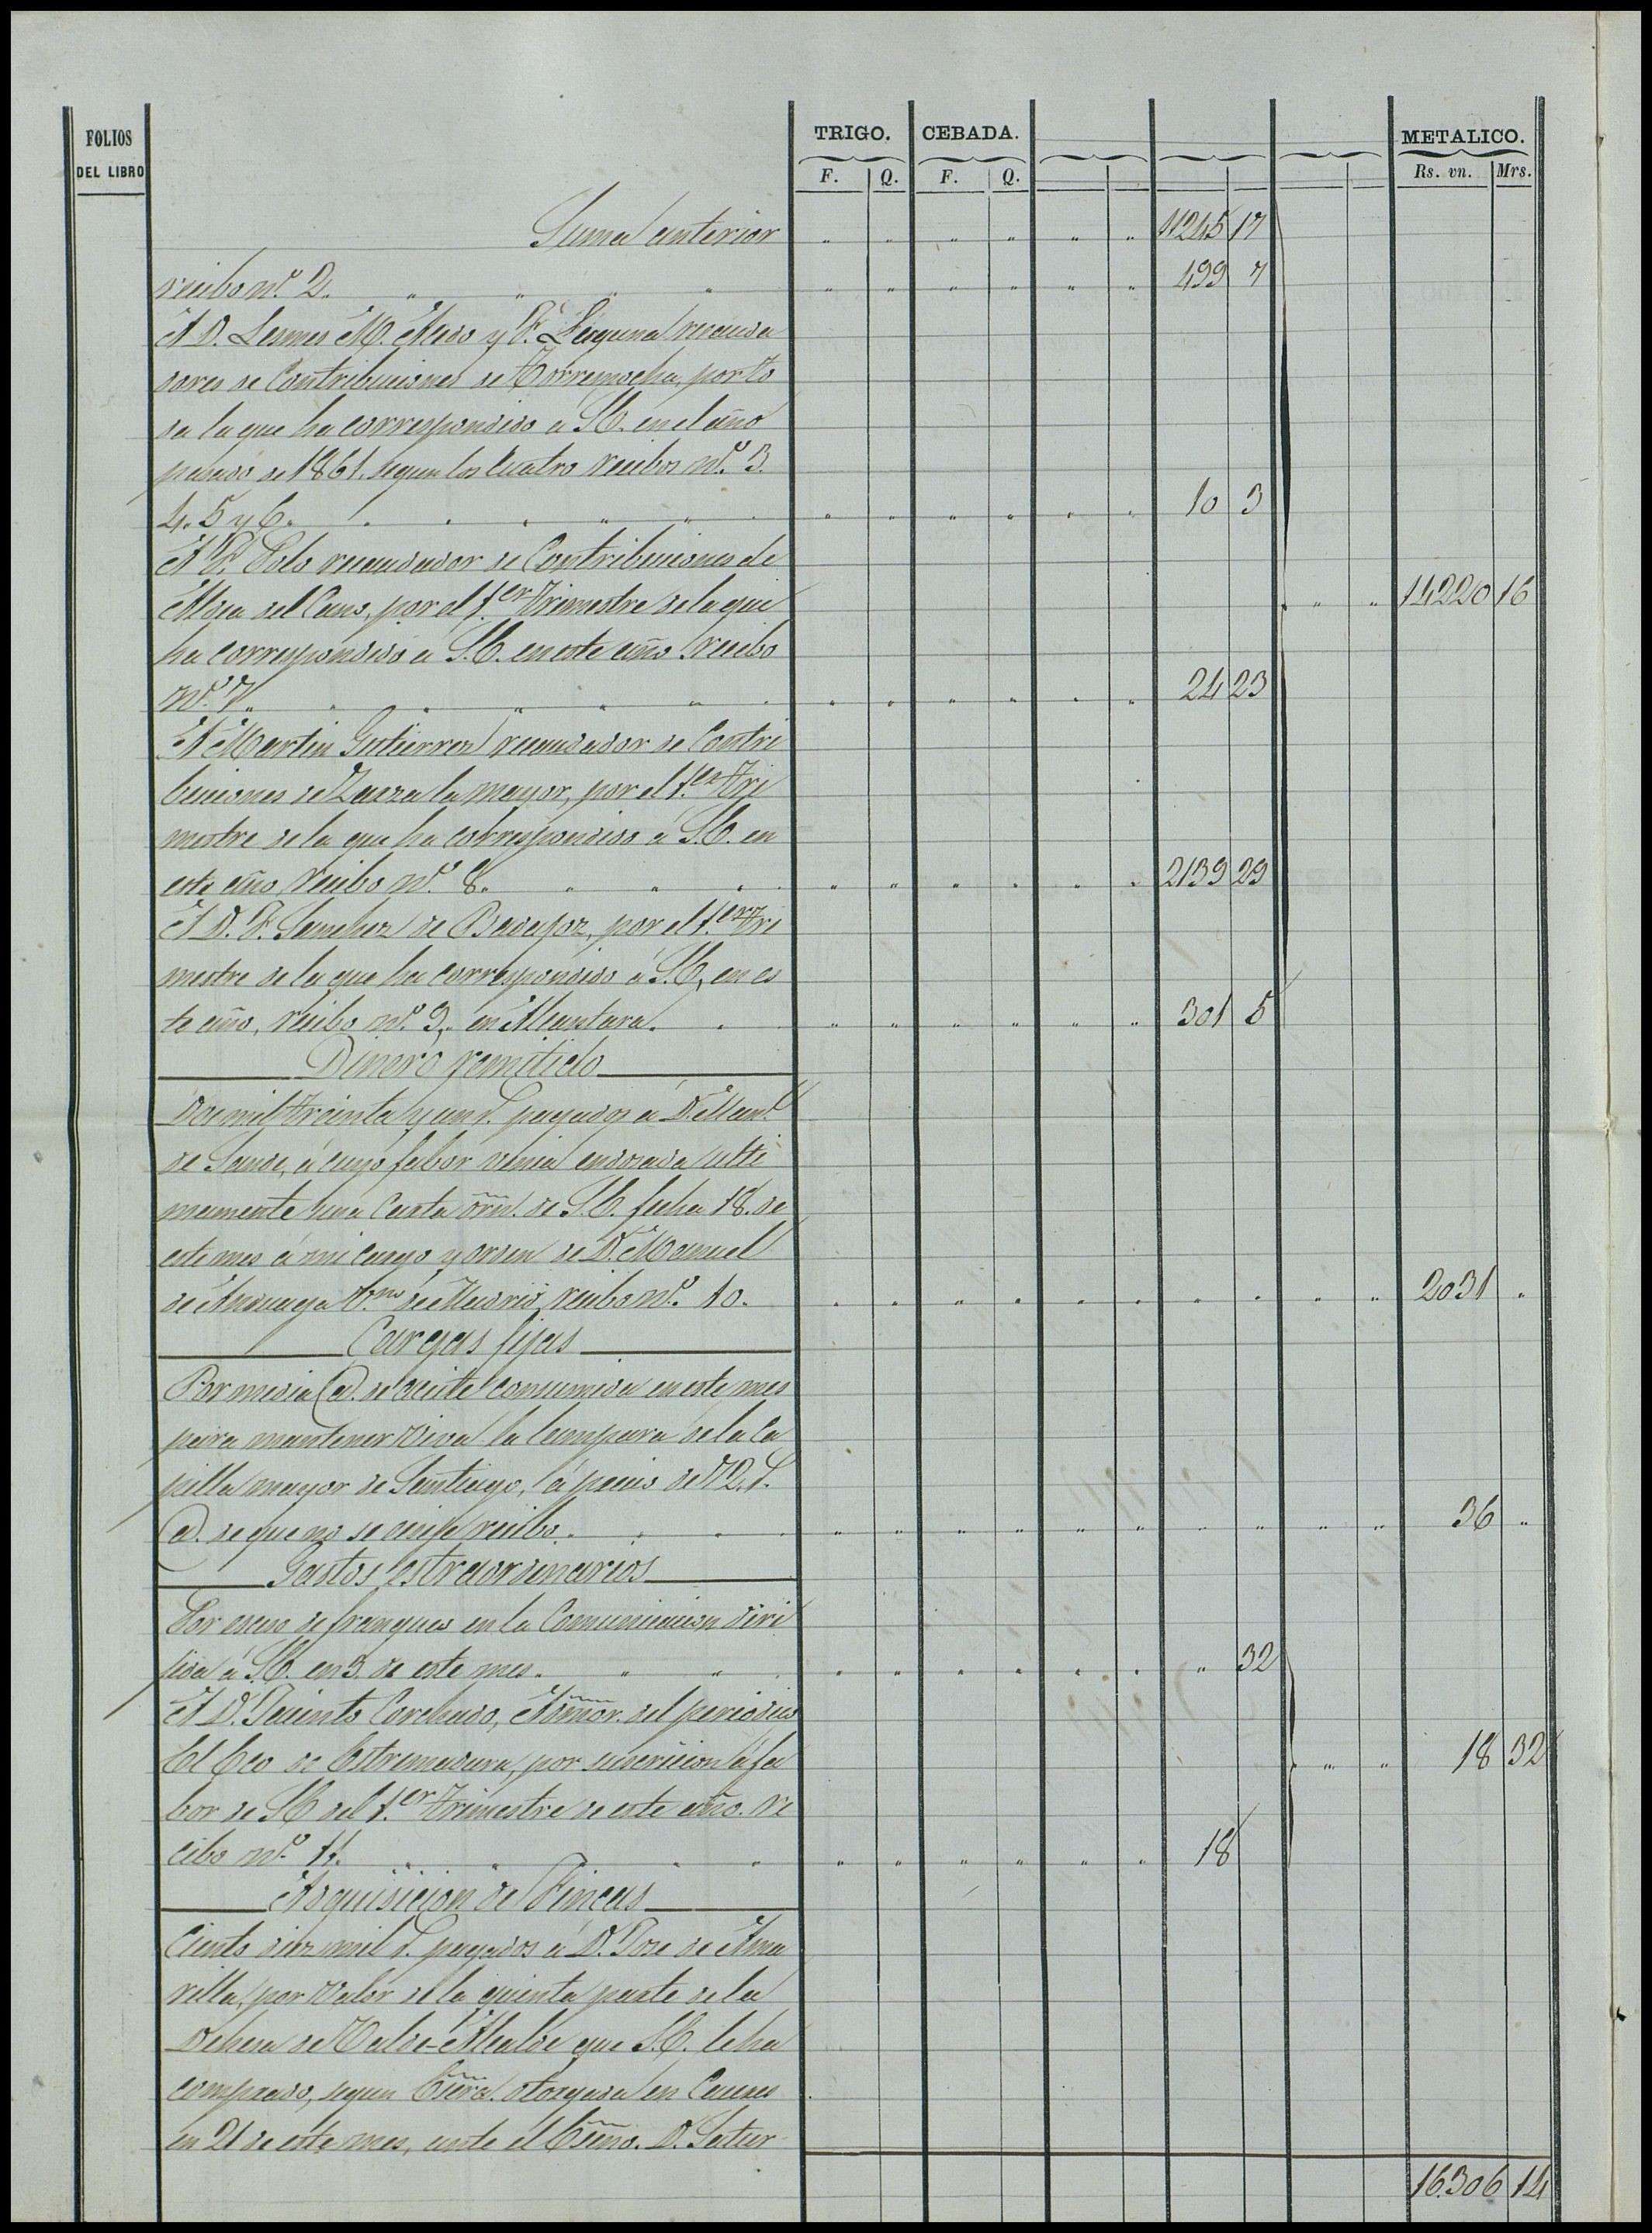 FOLIOS
DEL LIBRO
TRIGO. CEBADA. METALICO.
F. Q. F. Q. Rs. vn. Mrs.
Suma anterior 11245 17
recibo nº. 2. 499 7
A D. Lesmes M. Aledo y F. Laguna recauda
dores de Contribuciones de Torremocha, por to
da la que ha correspondido a S.E. en el año
pasado de 1861, segun los cuatro recibos nº. 3.
4. 5 y 6. 10 3
A F. Polo recaudador de Contribuciones de
Aldea del Cano, por el 1.er trimestre de la que 14220 16
ha correspondido a S.E. en este año recibo
nº. 7. 24 23
A Martin Gutierrez recaudador de Contri
buciones de Zarza la mayor, por el 1.er Tri
mestre de la que ha correspondido á S.E. en
este año, recibo nº. 8. 2139 29
A D. F. Sanchez de Badajoz, por el 1.er Tri
mestre de la que ha correspondido á S.E, en es
te año, recibo nº. 9, en Alcantara. 301 5
Dinero remitido
Dos mil treinta y un r. pagados a D. Man.l
de Sande, á cuyo fabor venia endosada ulti
mamente una Carta orn. de S.E. fecha 18. de
este mes á mi cargo y orden de D. Manuel
de Anduaga V.no de Madrid, recibo nº. 10. 2031
Cargas fijas
Por media @. de aceite consumida en este mes
para mantener viva la lampara de la Ca
pilla mayor de Santiago, á precio de 72. r.
@. de que no se exije recibo. 36
Gastos estraordinarios
Por esceso de franqueo en la Comunicacion diri
jida á S.E. en 3. de este mes. 32
A D. Jacinto Corchado, Admor. del periodico
El Eco de Estremadura, por suscricion á fa 18 32
bor de S.E. del 1.er trimestre de este año. Re
cibo nº. 11. 18
Adquisicion de Fincas
Ciento diez mil r. pagados á D. Jose de Ama
rilla, por valor de la quinta parte de la
Dehesa de Valde-Alcalde que S.E. le ha
comprado, segun Escra. otorgada en Caceres
en 21 de este mes, ante el Escno. D. Satur
16.306 14